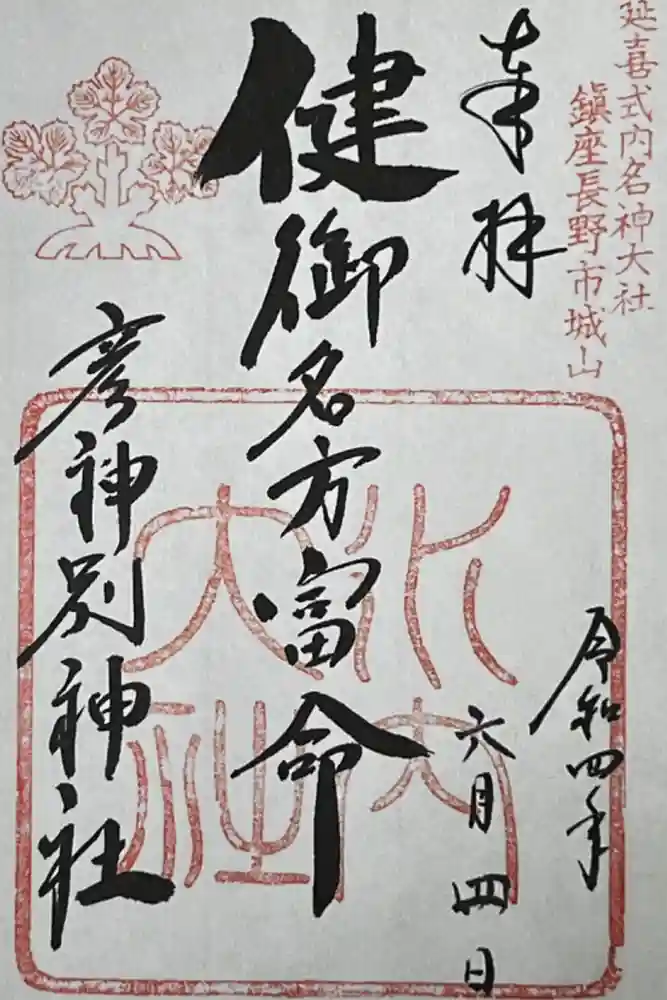 延喜式内名神大社
鎮座長野市城山
奉拝
令和四年
六月四日
健御名方富命
彦神別神社
水内大社